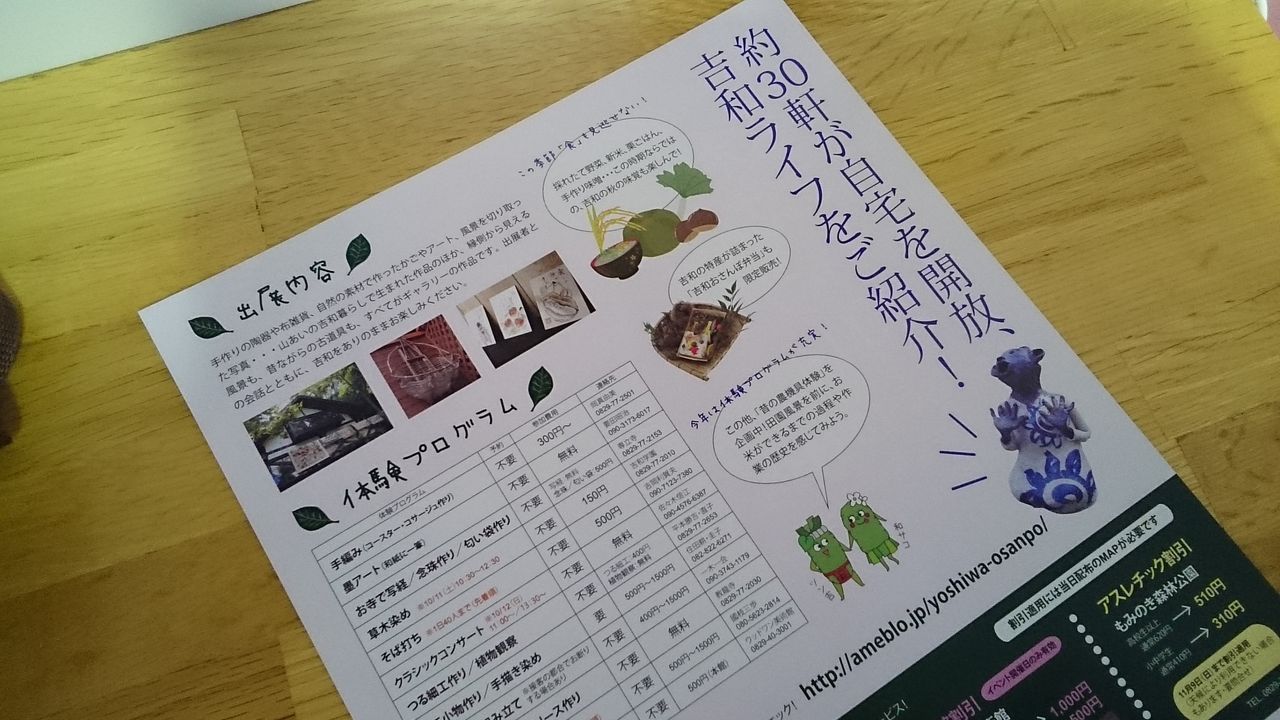 約30軒が自宅を開放、
吉和ライフをご紹介！
この季節「食」も見逃せない！
採れたて野菜、新米、栗ごはん、
手作り味噌・・・この時期ならでは
の、吉和の秋の味覚も楽しんで！
吉和の特産が詰まった
「吉和おさんぽ弁当」も
限定販売！
出展内容
手作りの陶器や布雑貨、自然の素材で作ったかごやアート、風景を切り取っ
た写真・・・山あいの吉和暮らしで生まれた作品のほか、縁側から見える
風景も、昔ながらの古道具も、すべてがギャラリーの作品です。出展者と
の会話とともに、吉和をありのままお楽しみください。
今年は体験プログラムが充実！
この他、「昔の農機具体験」を
企画中！田園風景を前に、お
米ができるまでの過程や作
業の歴史を感じてみよう。
体験プログラム
体験プログラム 予約 参加費用 連絡先
手編み（コースター・コサージュ作り） 不要 300円～ 0829-77-2501
墨アート（和紙に一筆） 不要 無料 090-3173-6017
お寺で写経／念珠作り／匂い袋作り 不要 写経：無料 念珠／匂い袋：500円 0829-77-2153
草木染め ※10/11（土）10:30～12:30 不要 150円 0829-77-2010
そば打ち ※1日40人まで（先着順） 不要 500円 090-7123-7380
クラシックコンサート ※10/12（日） 11:00～／13:30～ 不要 無料 090-4576-6387
つる細工作り／植物観察 不要 つる細工：400円 植物観察：無料 0829-77-2653
小物作り／手描き染め 要 500円～1500円 082-822-6271
組み立て ※接客の都合でお断りする場合あり 不要 400円～1500円 090-3743-1179
不要 無料 0829-77-2030
不要 500円～1500円 080-5623-2814
不要 500円（本館） ウッドワン美術館 0829-40-3001
http://ameblo.jp/yoshiwa-osanpo/
割引適用には当日配布のMAPが必要です
アスレチック割引
もみのき森林公園
高校生以上
通常620円 → 510円
小中学生
通常410円 → 310円
11月9日（日）まで割引適用
イベント開催日のみ有効
1,000円
500円
TEL. 0829-